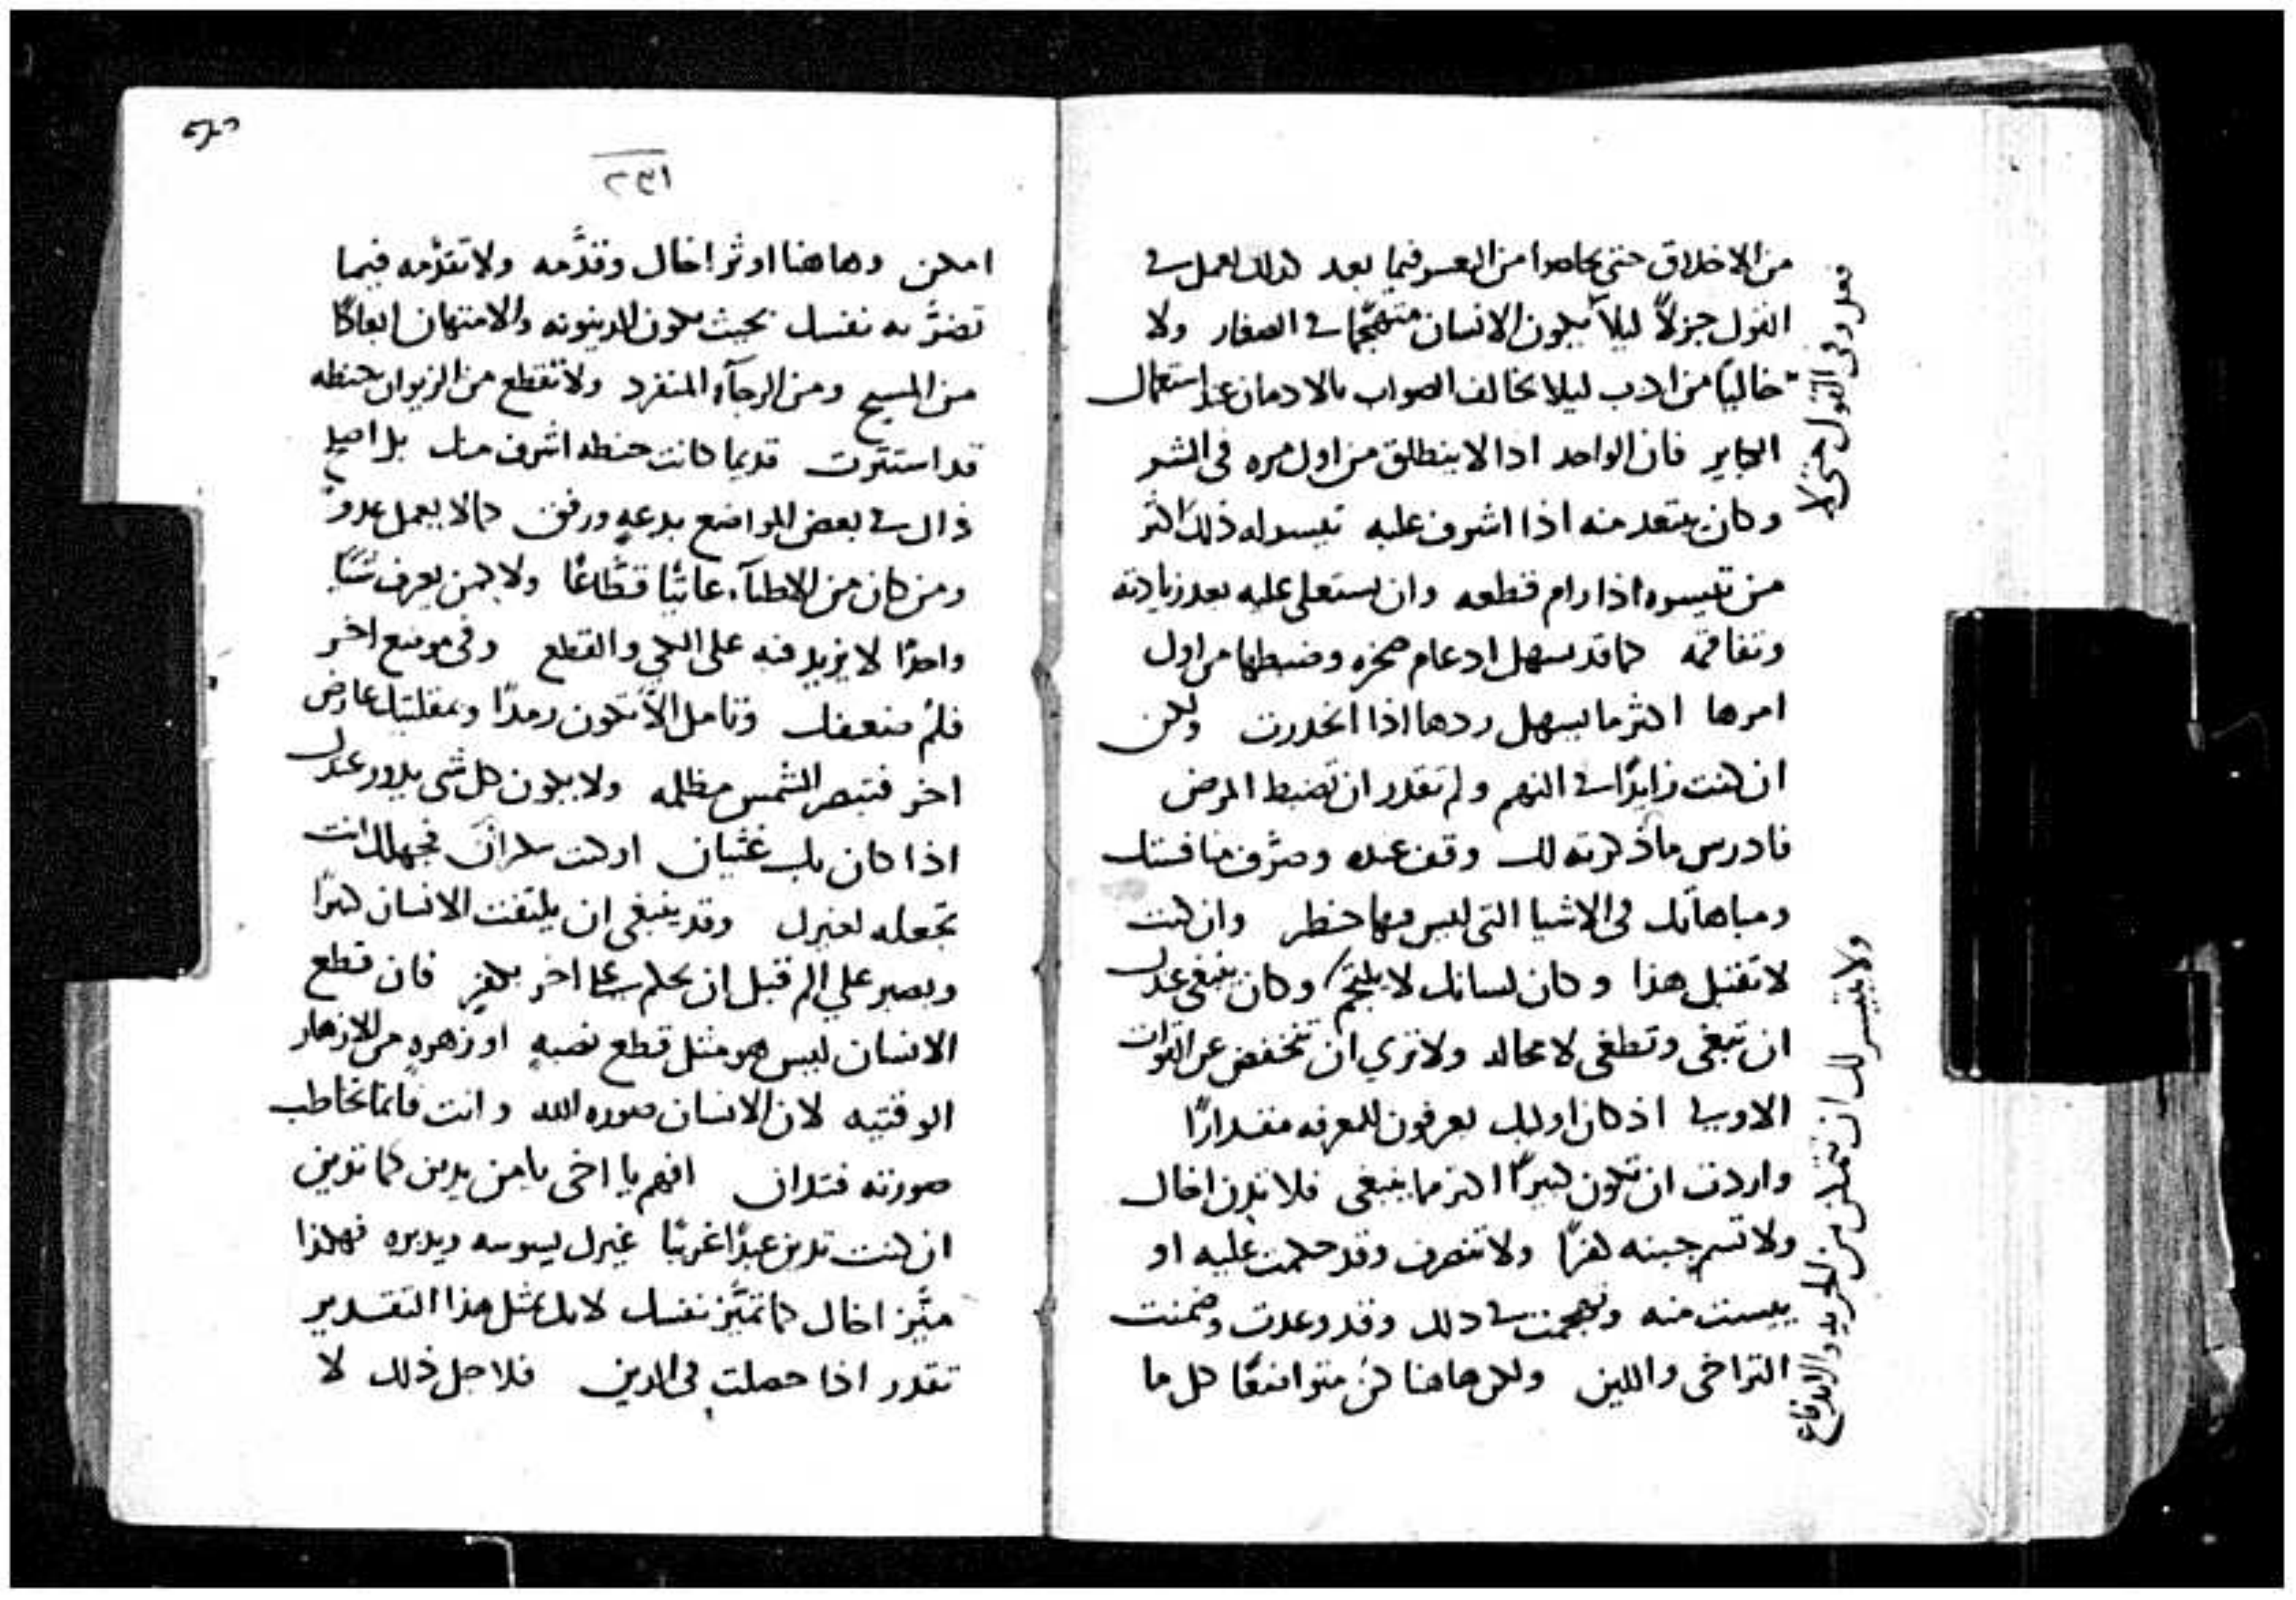 من الاخلاق حتى فيما بعد كذلك اعمل في
القول جزلاً ليلاً يكون الانسان متهجّمًا في الصغار ولا
خاليًا من ادب ليلا يخالف الصواب بالادمان عند استعمال
الكباير فان الواحد اذا لا ينطلق من اول مره في الشر
وكان يبتعد منه اذا اشرف عليه تيسر له ذلك اكثر
من تيسره اذا رام قطعه وان يستعلي عليه بعد زيادته
وتفاقمه كما قد يسهل ادعام صخره وضبطها من اول
امرها اكثر ما يسهل ردها اذا انحدرت ولكن
ان كنت زايدًا في النهم ولم تقدر ان تضبط المرض
فادرس ماذكرته لك وقف عنده وصرّف منافستك
ومباهاتك في الاشيا التي ليس فيها خطر وان كنت
لا تقتبل هذا وكان لسانك لا يلتجم وكان ينبغي عندك
ان تبغي وتطغي لا محاله ولا تري ان تنخفض عن القوات
الاولي اذ كان اوليك يعرفون للمعرفه مقدارًا
واردت ان تكون كبيرًا اكثر مما ينبغي فلا تدن اخاك
ولا تسم جبنه كفرًا ولا تنصرف وقد حكمت عليه او
ييست منه وتهجمت في ذلك وقد وعدت وضمنت
التراخي واللين ولكن هاهنا كن متواضعًا كل ما
في القول حتى لا
ولا يتيسر لك ان تتمكن من
٢٣١
امكن وهاهنا اوثر اخاك وقدَّمه ولا تقدّمه فيما
تضرّ به نفسك بحيث يكون الدينونه والامتهان ابعادًا
من المسيح ومن الرجآء المنفرد ولا تقطع من الزيوان حنطه
قد استترت قديما كانت حنطه اشرف منك بل اصلح
ذاك في بعض المواضع بدعهٍ ورفق كما لا يعمل عدوٌ
ومن كان من الاطبآء عاتيًا قطّاعًا ولا كمن يعرف شيًا
واحدًا لا يزيد فنه على الكي والقطع وفي موضع اخر
فلُم ضعفك وتامل الاّ تكون رمدًا وبمقلتيك عارض
اخر فتبصر الشمس مظلمه ولا يكون كل شي يدور عندك
اذا كان بك غثيان او كنت سكران فجهلك انت
تجعله لغيرك وقد ينبغي ان يلتفت الانسان كثيرًا
ويصبر علي الم قبل ان يحكم علي اخر بكفرٍ فان قطع
الانسان ليس هو مثل قطع نصبهٍ او زهرهٍ من الازهار
الوقتيه لان الانسان صوره الله وانت فانما تخاطب
صورته فتدان افهم يا اخي يا من يدين كما تدين
ان كنت تدين عبدًا غريبًا غيرك يسوسه ويدبره فهكذا
ميّز اخاك كما تميّز نفسك لانك بمثل هذا التقدير
تقدر اذا حصلت في الدين فلاجل ذلك لا